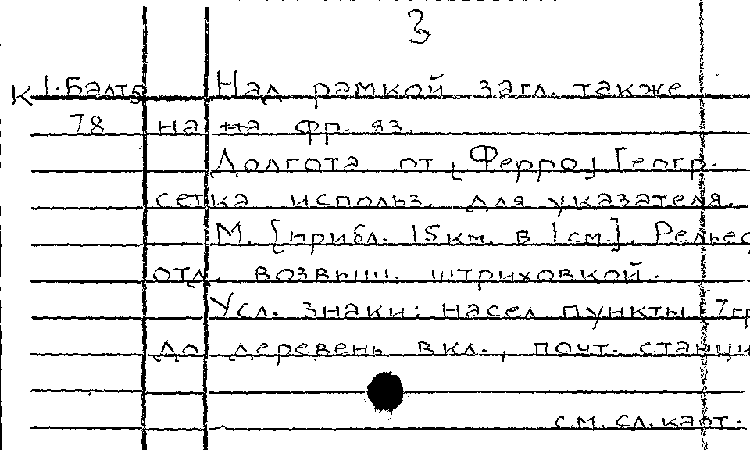 3
К 1-Балт5 Над рамкой загл. также
78 на на фр. яз.
Долгота от [Ферро] Геогр.
сетка использ. для указателя.
М. [прибл. 15км. в 1см.]. Рельеф
отд. возвыш. штриховкой.
Усл. знаки: насел пункты 7гр
до деревень вкл., почт. станци
см. сл. карт.